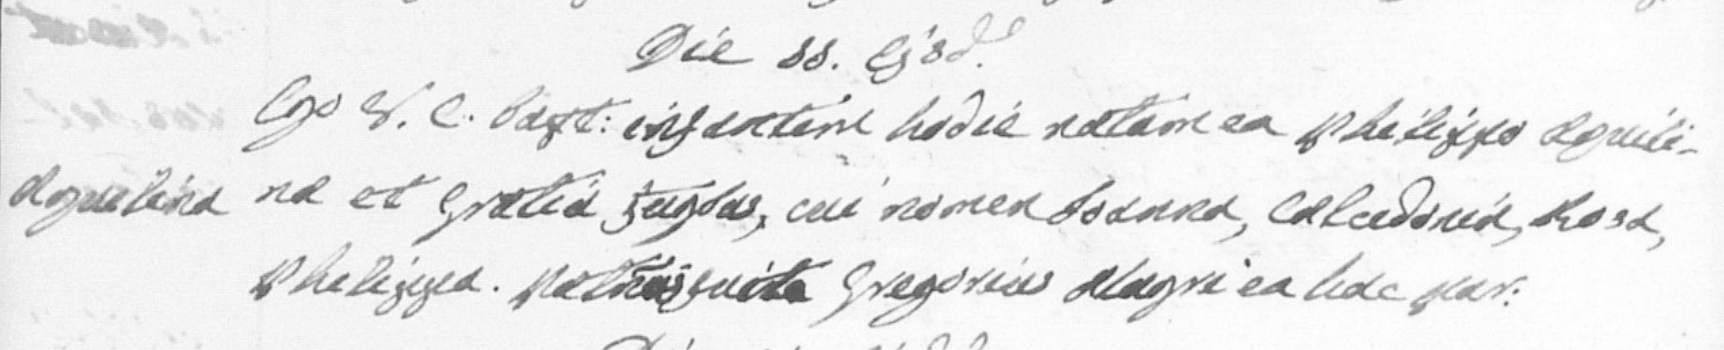 Die 22. Ejusd.
Ego V. C. bapt: infantem hodie natam ex Philippo Aquili-
Aquilina
na et Gratia jugabus, cui nomen Joanna, Calcedonia, Rosa,
Philippa. Patrinus fuit Gregorius Alagni ex hac par: